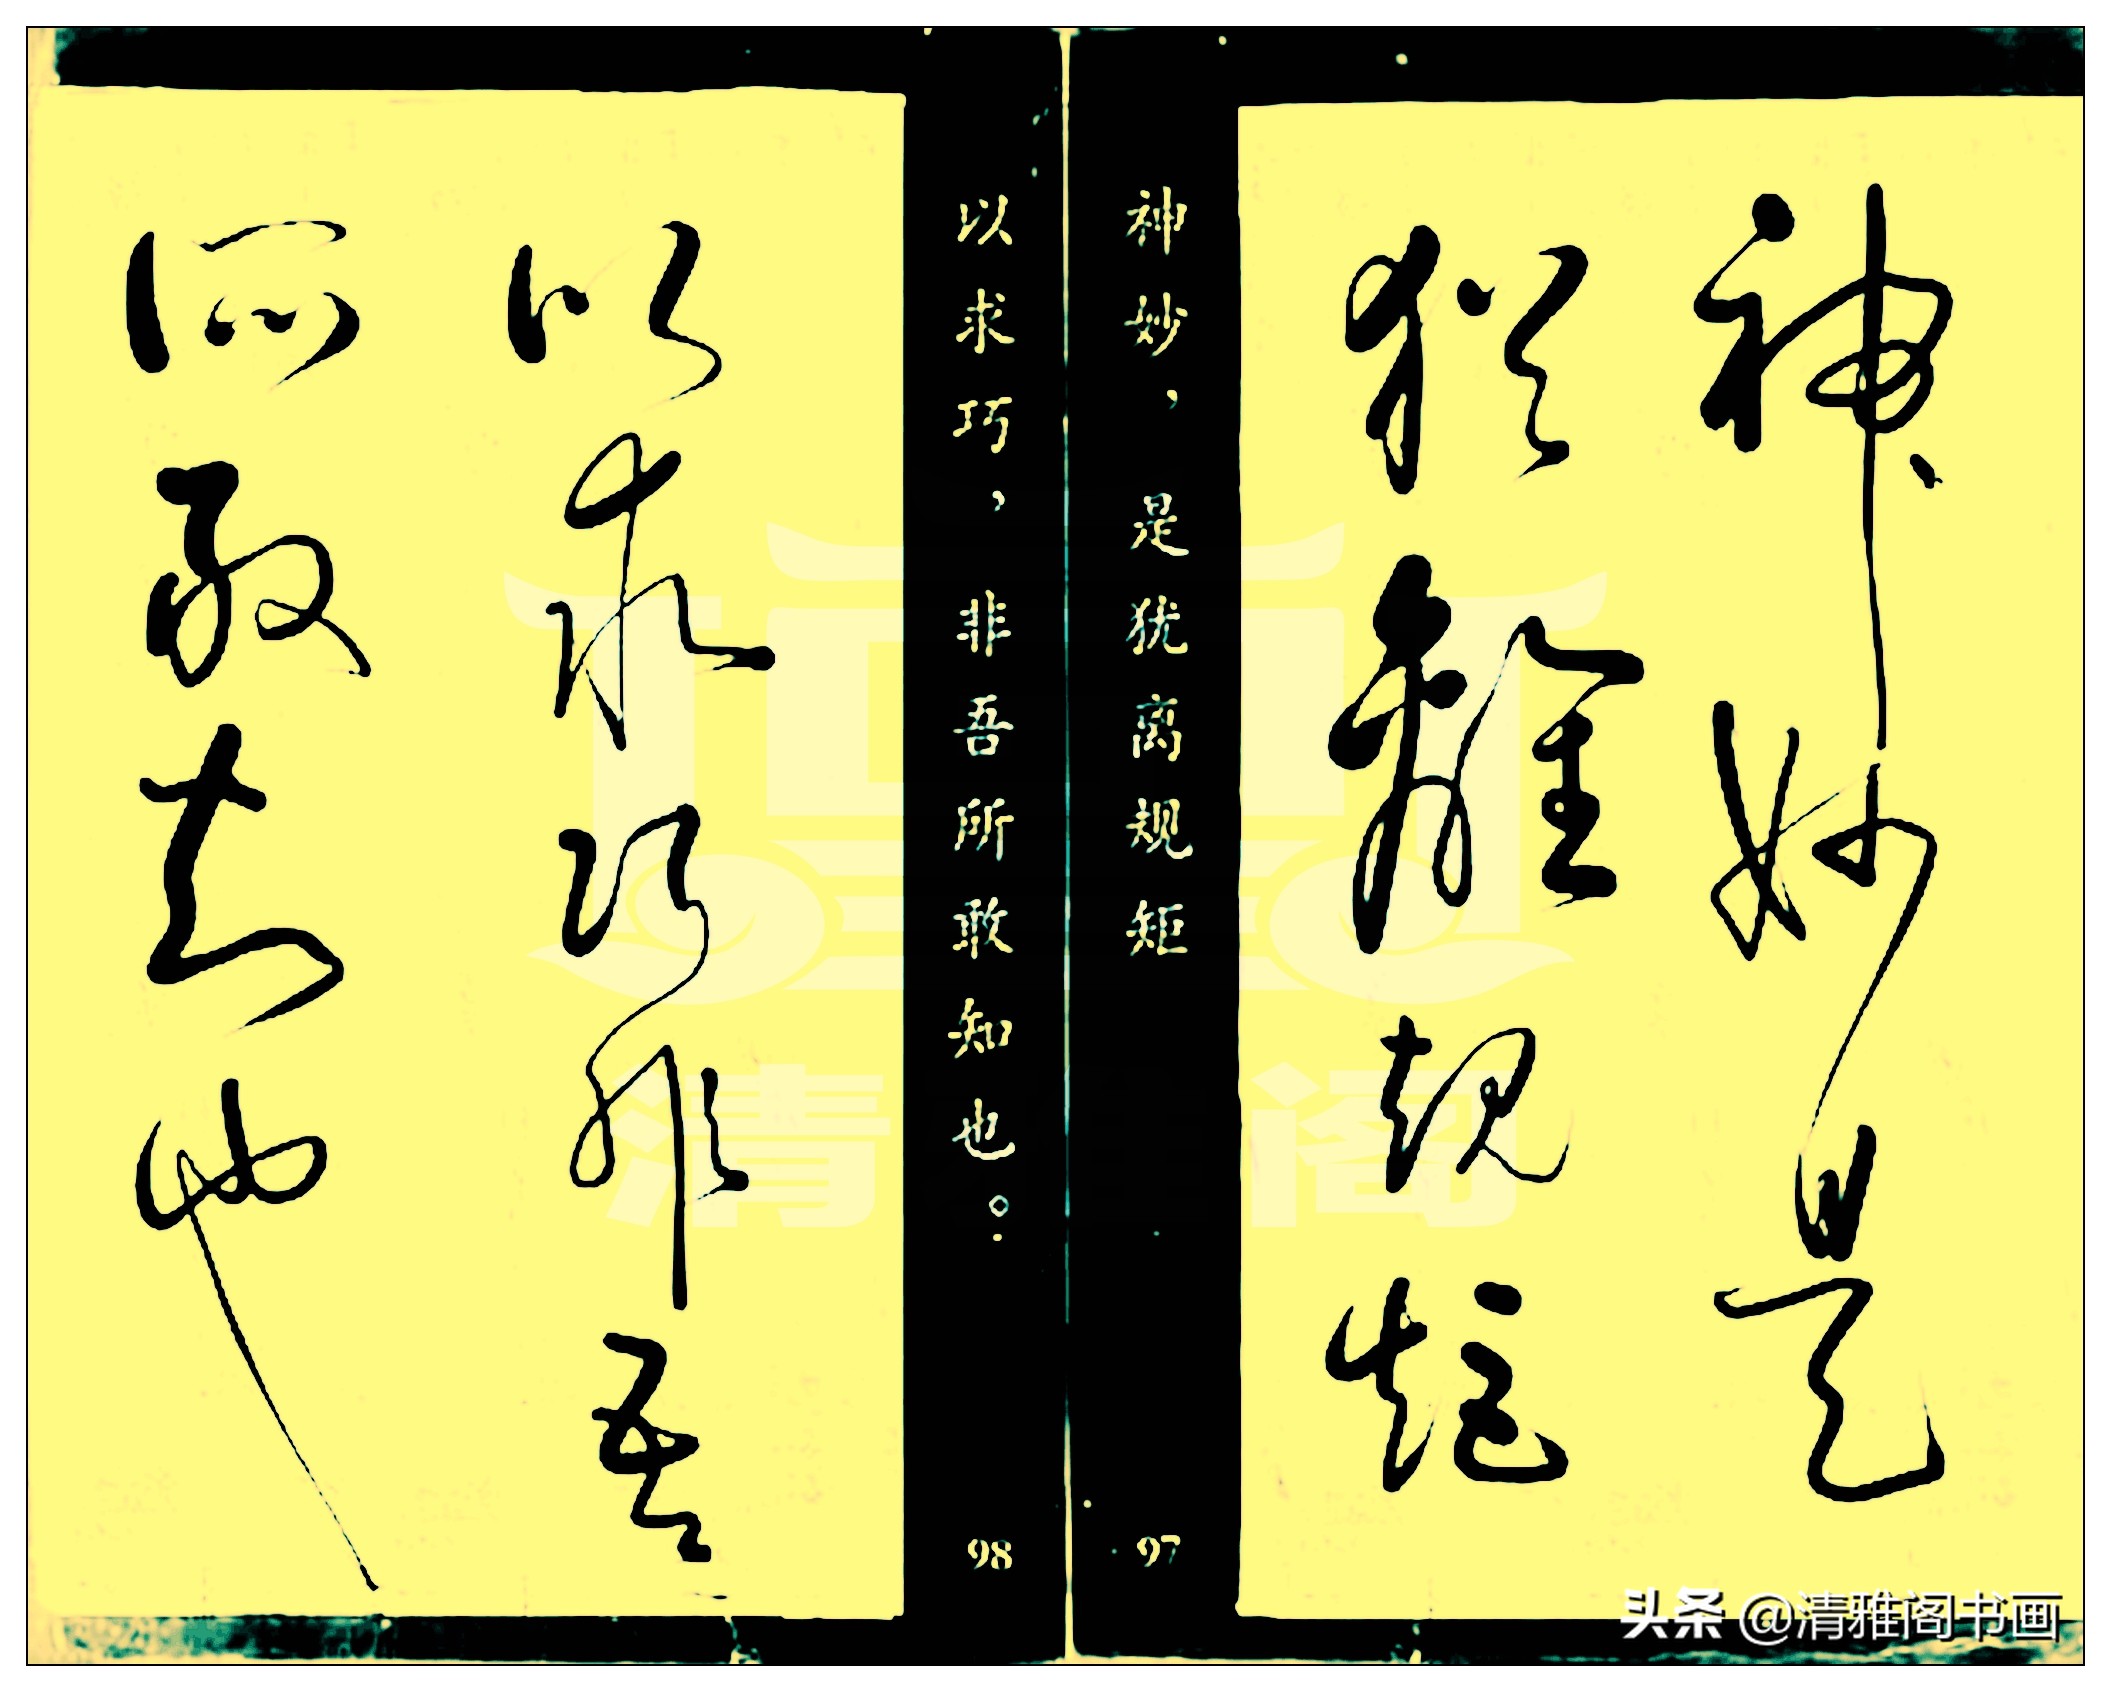 神妙是
犹离规矩
神妙，是犹离规矩
97
以求巧非吾
所敢知也
以求巧，非吾所敢知也。
98
清 阁
头条 @清雅阁书画